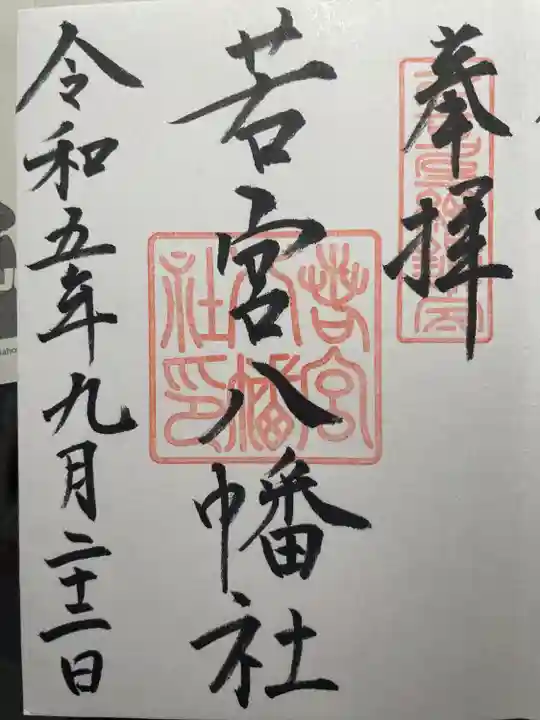 奉拝
若宮八幡社
若宮
八幡
社印
令和五年九月二十二日